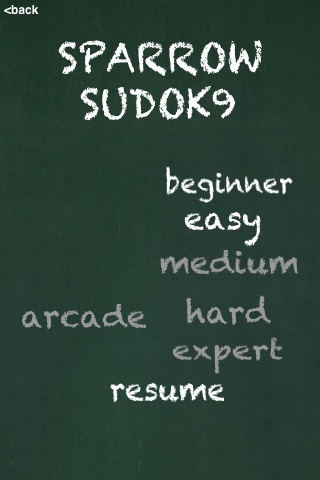 <back
SPARROW
SUDOK9
beginner
easy
medium
arcade hard
expert
resume